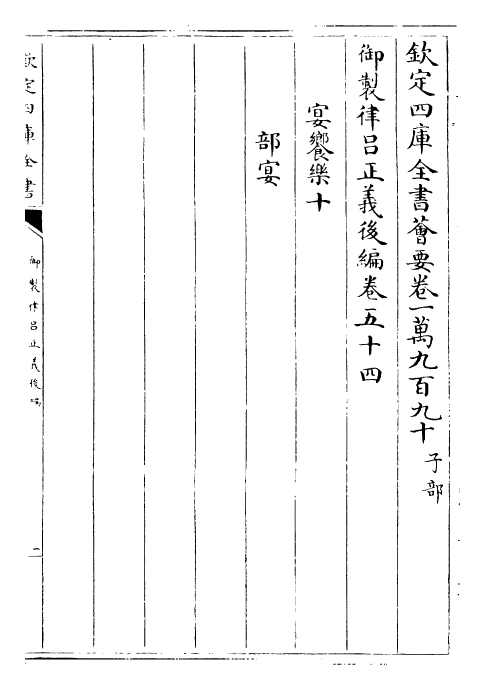 欽定四庫全書薈要卷一萬九百九十 子部
御製律呂正義後編卷五十四
宴饗樂十
部宴
欽定四庫全書
御製律呂正義後編